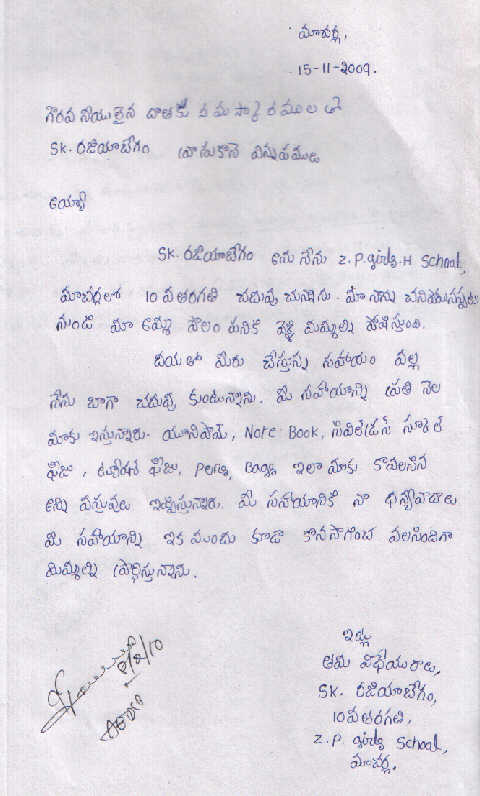 మాచర్ల,
15-11-2009.
గౌరవనీయులైన దాతకు నమస్కారములతో
SK. రజియాబేగం వ్రాసుకొనే విన్నపము
అయ్యా
SK. రజియాబేగం అను నేను Z.P.girls.H School,
మాచర్లలో 10వ తరగతి చదువుచున్నాను. మా నాన్న చనిపోయినప్పటి
నుండి మా అమ్మ పొలం పనికి వెళ్లి మమ్మల్ని పోషిస్తుంది.
దయతో మీరు చేస్తున్న సహాయం వల్ల
నేను బాగా చదువు కుంటున్నాను. మీ సహాయాన్ని ప్రతి నెల
మాకు ఇస్తున్నారు. యూనిఫామ్, Note Book, స్కూల్
ఫీజు, ట్యూషన్ ఫీజు, Pens, Bags ఇలా మాకు కావలసిన
అన్ని వస్తువులు ఇస్తున్నారు. మీ సహాయానికి నా ధన్యవాదాలు
మీ సహాయాన్ని ఇక ముందు కూడా కొనసాగించ వలసిందిగా
మిమ్మల్ని ప్రార్థిస్తున్నాను.
8/2/10
ఇట్లు
తమ విధేయురాలు,
SK. రజియాబేగం,
10వ తరగతి,
Z.P girls School,
మాచర్ల.